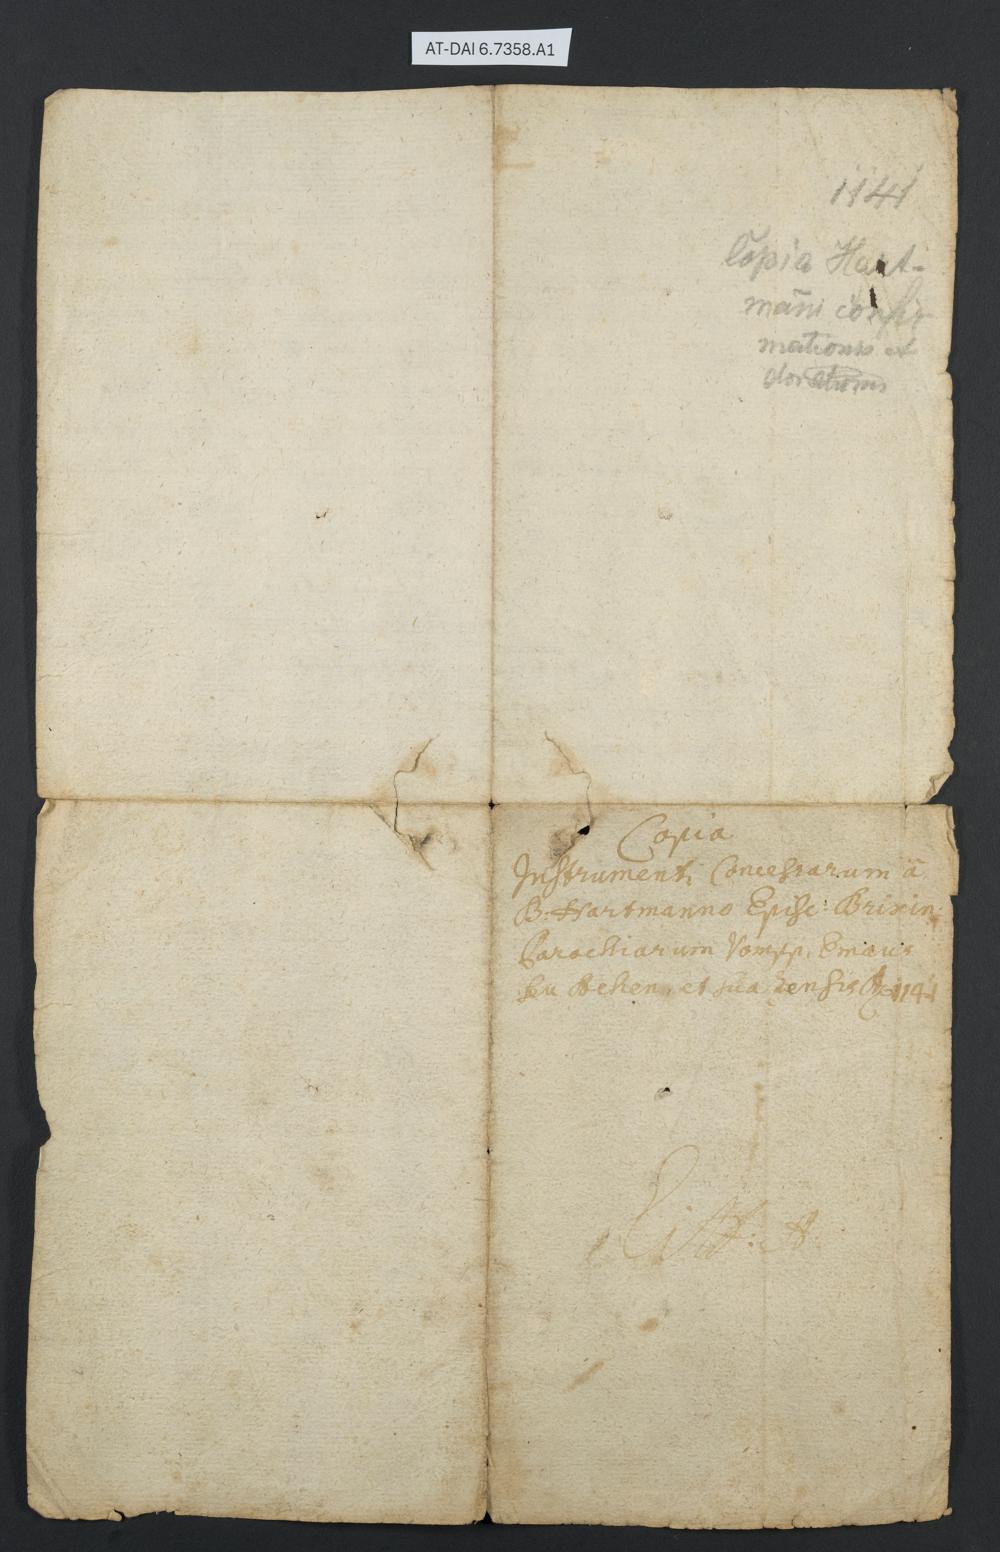 AT-DAI 6.7358.A1
1141
Copia Hart-
mani confir
mationis et
donationis
Copia
Instrumenti Concessarum à
B. Hartmanno Episc: Brixin:
Parochiarum Vompp, Emaus
seu Achen, et Suazensis Aō 1141
Litt: A.